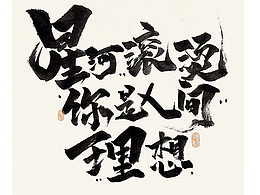 星河滚烫
你是人间
理想